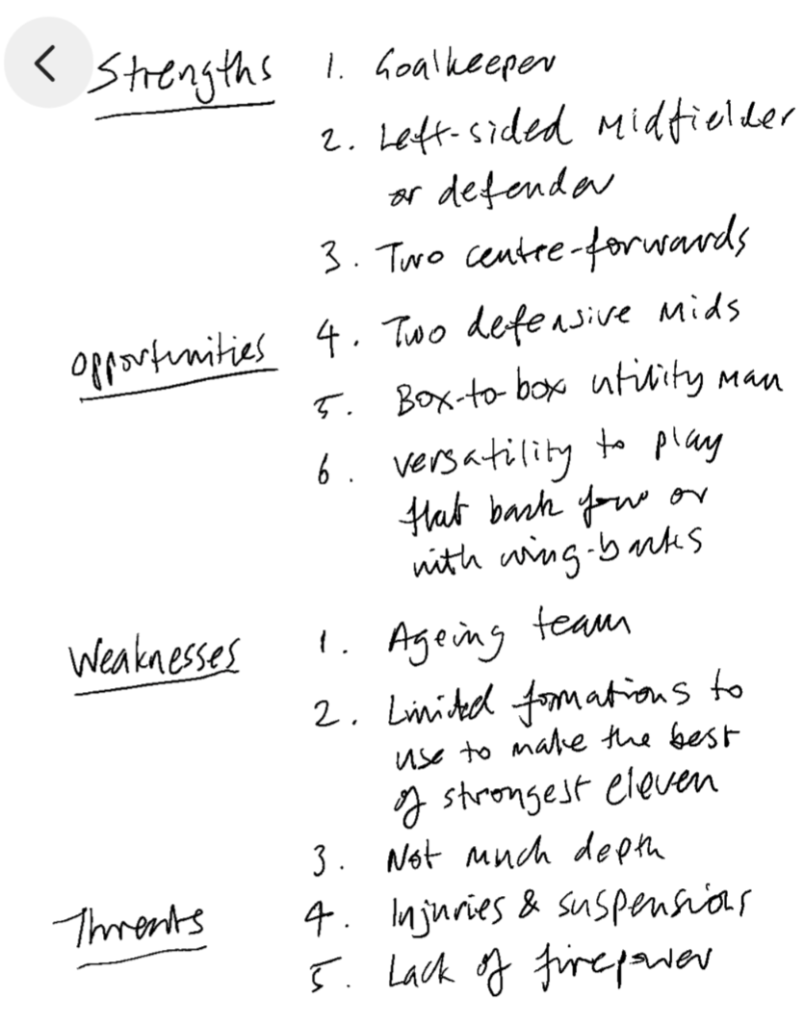 Strengths 1. Goalkeeper
2. Left-sided midfielder
or defender
3. Two centre-forwards
Opportunities 4. Two defensive mids
5. Box-to-box utility man
6. versatility to play
flat back four or
with wing-backs
Weaknesses 1. Ageing team
2. Limited formations to
use to make the best
of strongest eleven
3. Not much depth
Threats 4. Injuries & suspensions
5. Lack of firepower